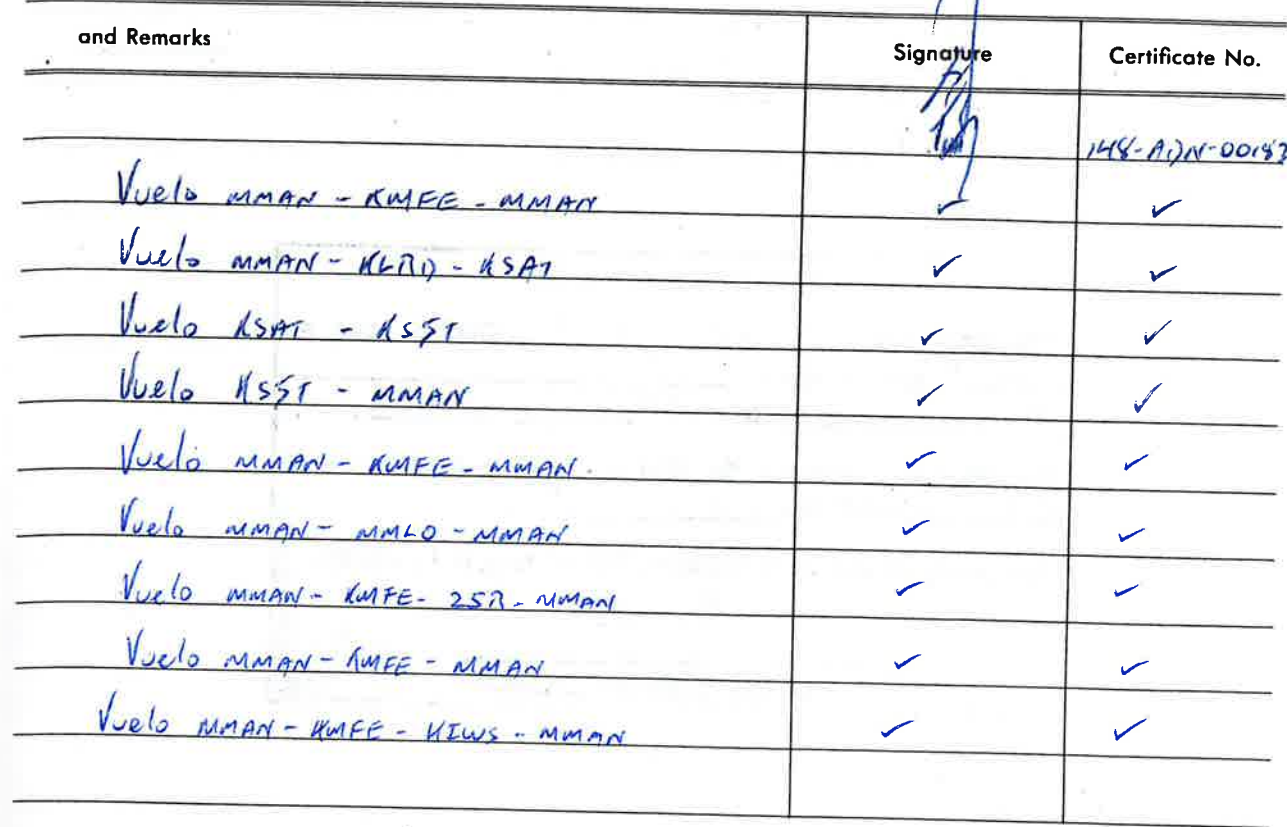 and Remarks Signature Certificate No.
148-ADN-00183
Vuelo MMAN - KMFE - MMAN ✓ ✓
Vuelo MMAN - KLRD - KSAT ✓ ✓
Vuelo KSAT - KSST ✓ ✓
Vuelo KSST - MMAN ✓ ✓
Vuelo MMAN - KMFE - MMAN. ✓ ✓
Vuelo MMAN - MMLO - MMAN ✓ ✓
Vuelo MMAN - KMFE - 25R - MMAN ✓ ✓
Vuelo MMAN - KMFE - MMAN ✓ ✓
Vuelo MMAN - KMFE - KIWS - MMAN ✓ ✓